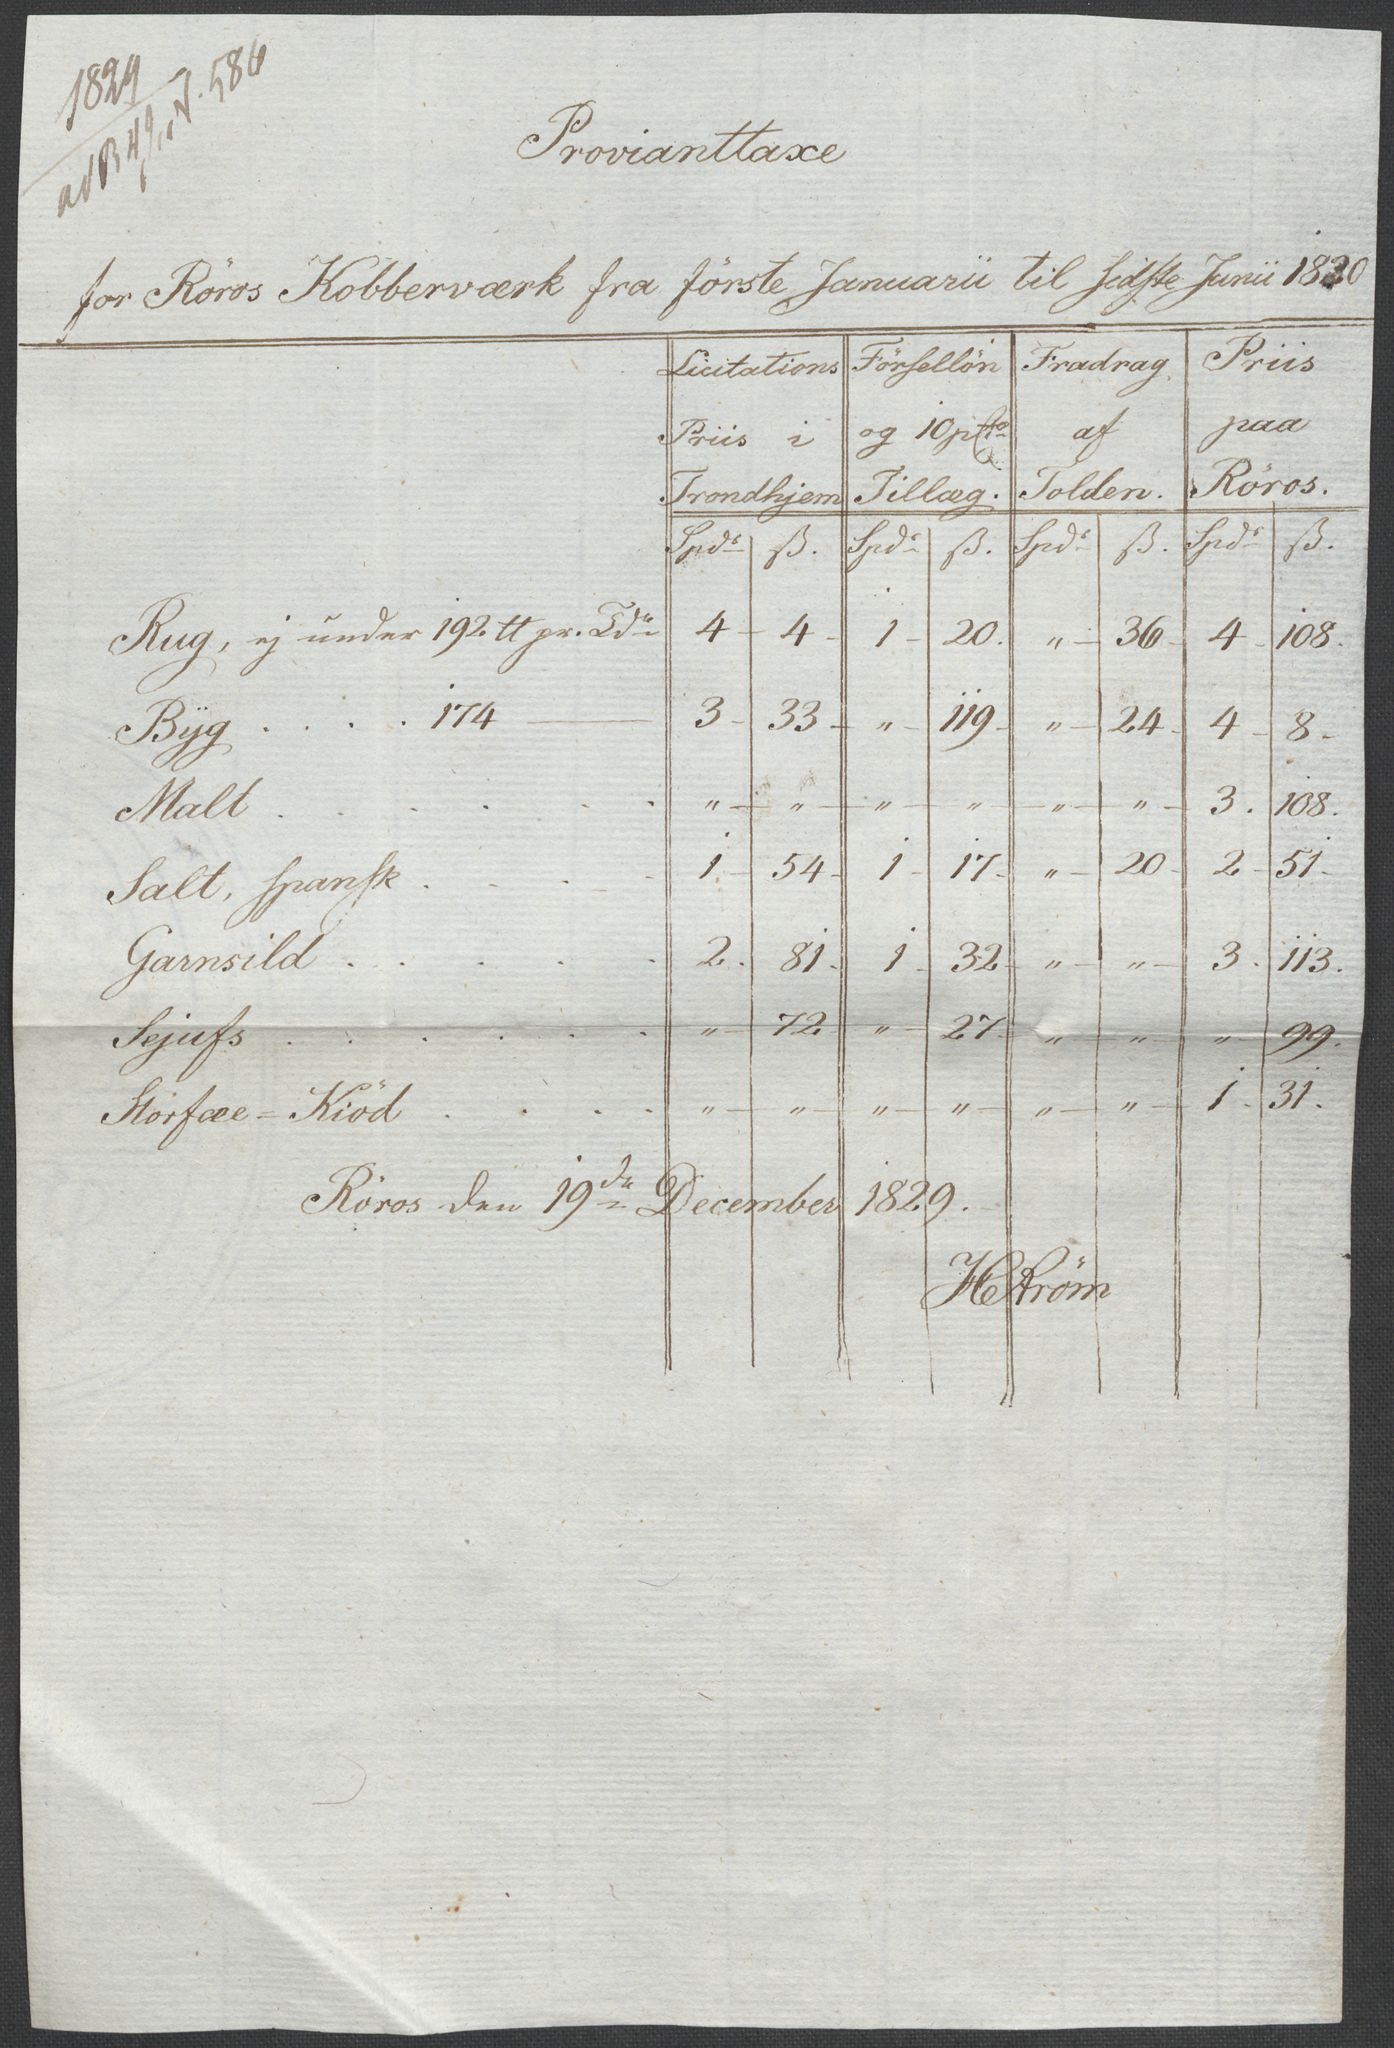 1829
ad B 49, N. 586
Provianttaxe
for Röros Kobberværk fra förste Januarii til sidste Junii 1830
Licitations Priis i Trondhjem | Försellön og 10 pCto Tillæg. | Fradrag af Tolden. | Priis paa Röros.
Spdr ß. | Spdr ß. | Spdr ß. | Spdr ß.
Rug, ej under 192 tt pr. Tde 4 - 4 - 1 - 20. " - 36 - 4 - 108.
Byg . . . . 174 — 3 - 33 - " - 119 - " - 24 - 4 - 8 -
Malt . . . . . . " - " - " - " - " - " - 3 . 108.
Salt, spansk . . . . 1 - 54 - 1 - 17 - " - 20 - 2 - 51 -
Garnsild . . . . . 2 . 81 . 1 . 32 - " - " - 3 . 113.
Sejufs . . . . . . " - 72 " - 27 - " - " - " - 99.
Storfæe - Kiöd . . . . " - " - " - " - " - " - 1 - 31.
Röros den 19de December 1829.
HStröm